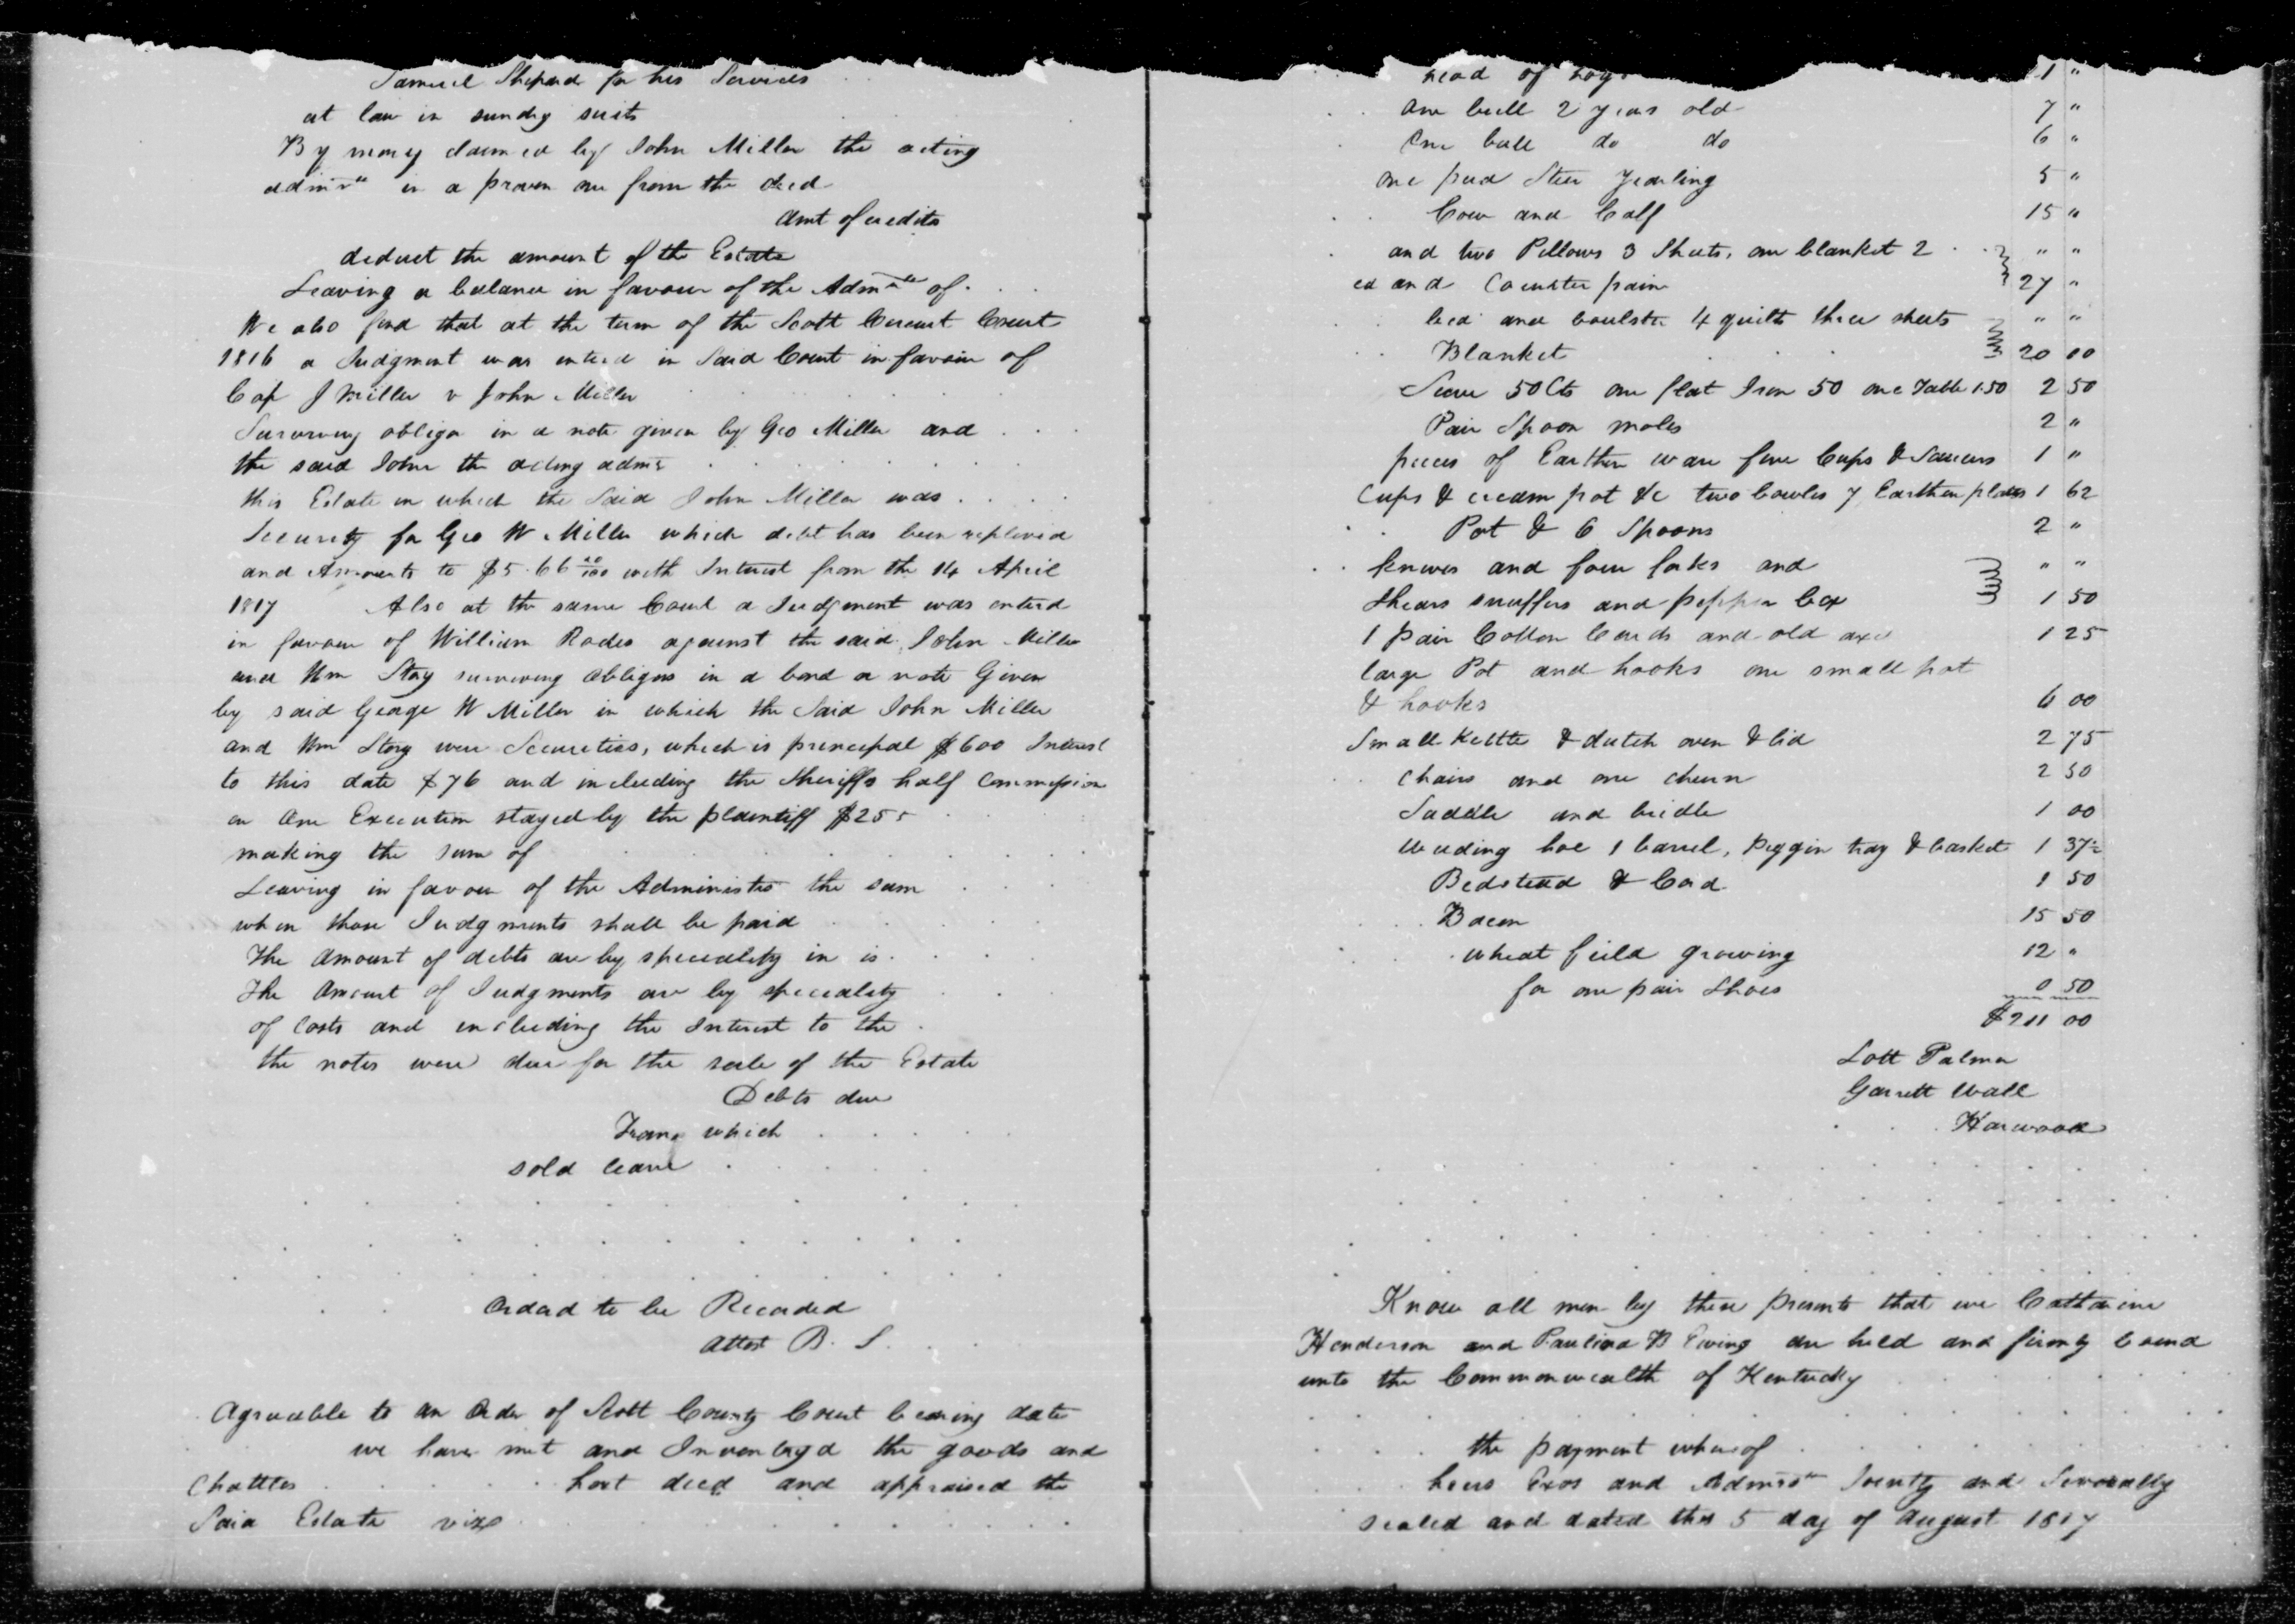 Samuel Shepard for his Services
at law in sundry suits
By money claimed by John Miller the acting
admr in a proven acc from the decd
Amt of credits
deduct the amount of the Estate
Leaving a balance in favour of the Admrs of
We also find that at the term of the Scott Circuit Court
1816 a Judgment was entered in Said Court in favour of
J Miller v John Miller
Surviving obligor in a note given by Geo Miller and
the said John the acting admr
this Estate in which the Said John Miller was
Security for Geo W Miller which debt has been replevied
and Amounts to $5.66 with Interest from the 14 April
1817 Also at the same Court a Judgment was enterd
in favour of William Rodes against the said John Miller
and Wm Story surviving obligors in a bond or note Given
by said George W Miller in which the Said John Miller
and Wm Story were Securities, which is principal $600 Interest
to this date $76 and including the Sheriffs half Commission
on One Execution stayed by the plaintiff $25
making the sum of
Leaving in favour of the Administrs the sum
when those Judgments shall be paid
The Amount of debts are by speciality in is
The Amount of Judgments are by speciality
of Costs and including the Interest to the
the notes were due for the sale of the Estate
Debts due
From which
sold leave
Ordered to be Recorded
Attest B. S.
Agreeable to an Order of Scott County Court bearing date
we have met and Inventoryd the goods and
Chattles hort decd and appraised the
Said Estate viz
head of hogs 1 "
One bull 2 years old 7 "
One bull do do 6 "
one pied Steer Yearling 5 "
Cow and Calf 15 "
and two Pillows 3 Sheets, one blanket 2 " "
ed and Counterpain 27 "
bed and boulster 4 quilts three sheets " "
Blanket 20 00
Sieve 50 Cts one flat Iron 50 one Table 1.50 2 50
Pair Spoon moles 2 "
pieces of Earthen ware five Cups & Saucers 1 "
Cups & cream pot &c two bowles 7 Earthen plates 1 62
Pot & 6 Spoons 2 "
knives and four forks and " "
Shears snuffers and pepper box 1 50
1 pair Cotton Cards and old axe 1 25
large Pot and hooks one small pot
& hooks 6 00
Small Kettle & dutch oven & lid 2 75
Chairs and one churn 2 50
Saddle and bridle 1 00
weeding hoe 1 barrel, piggin tray & basket 1 37½
Bedstead & Cord 1 50
Bacon 15 50
wheat field growing 12 "
for one pair Shoes 0 50
$211 00
Lott Palmer
Garrett Wall
Harwood
Know all men by these presents that we Catharine
Henderson and Paulina B Ewing are held and firmly bound
unto the Commonwealth of Kentucky
the payment whereof
heirs Exos and Admrs Jointly and Severally
sealed and dated this 5 day of August 1817